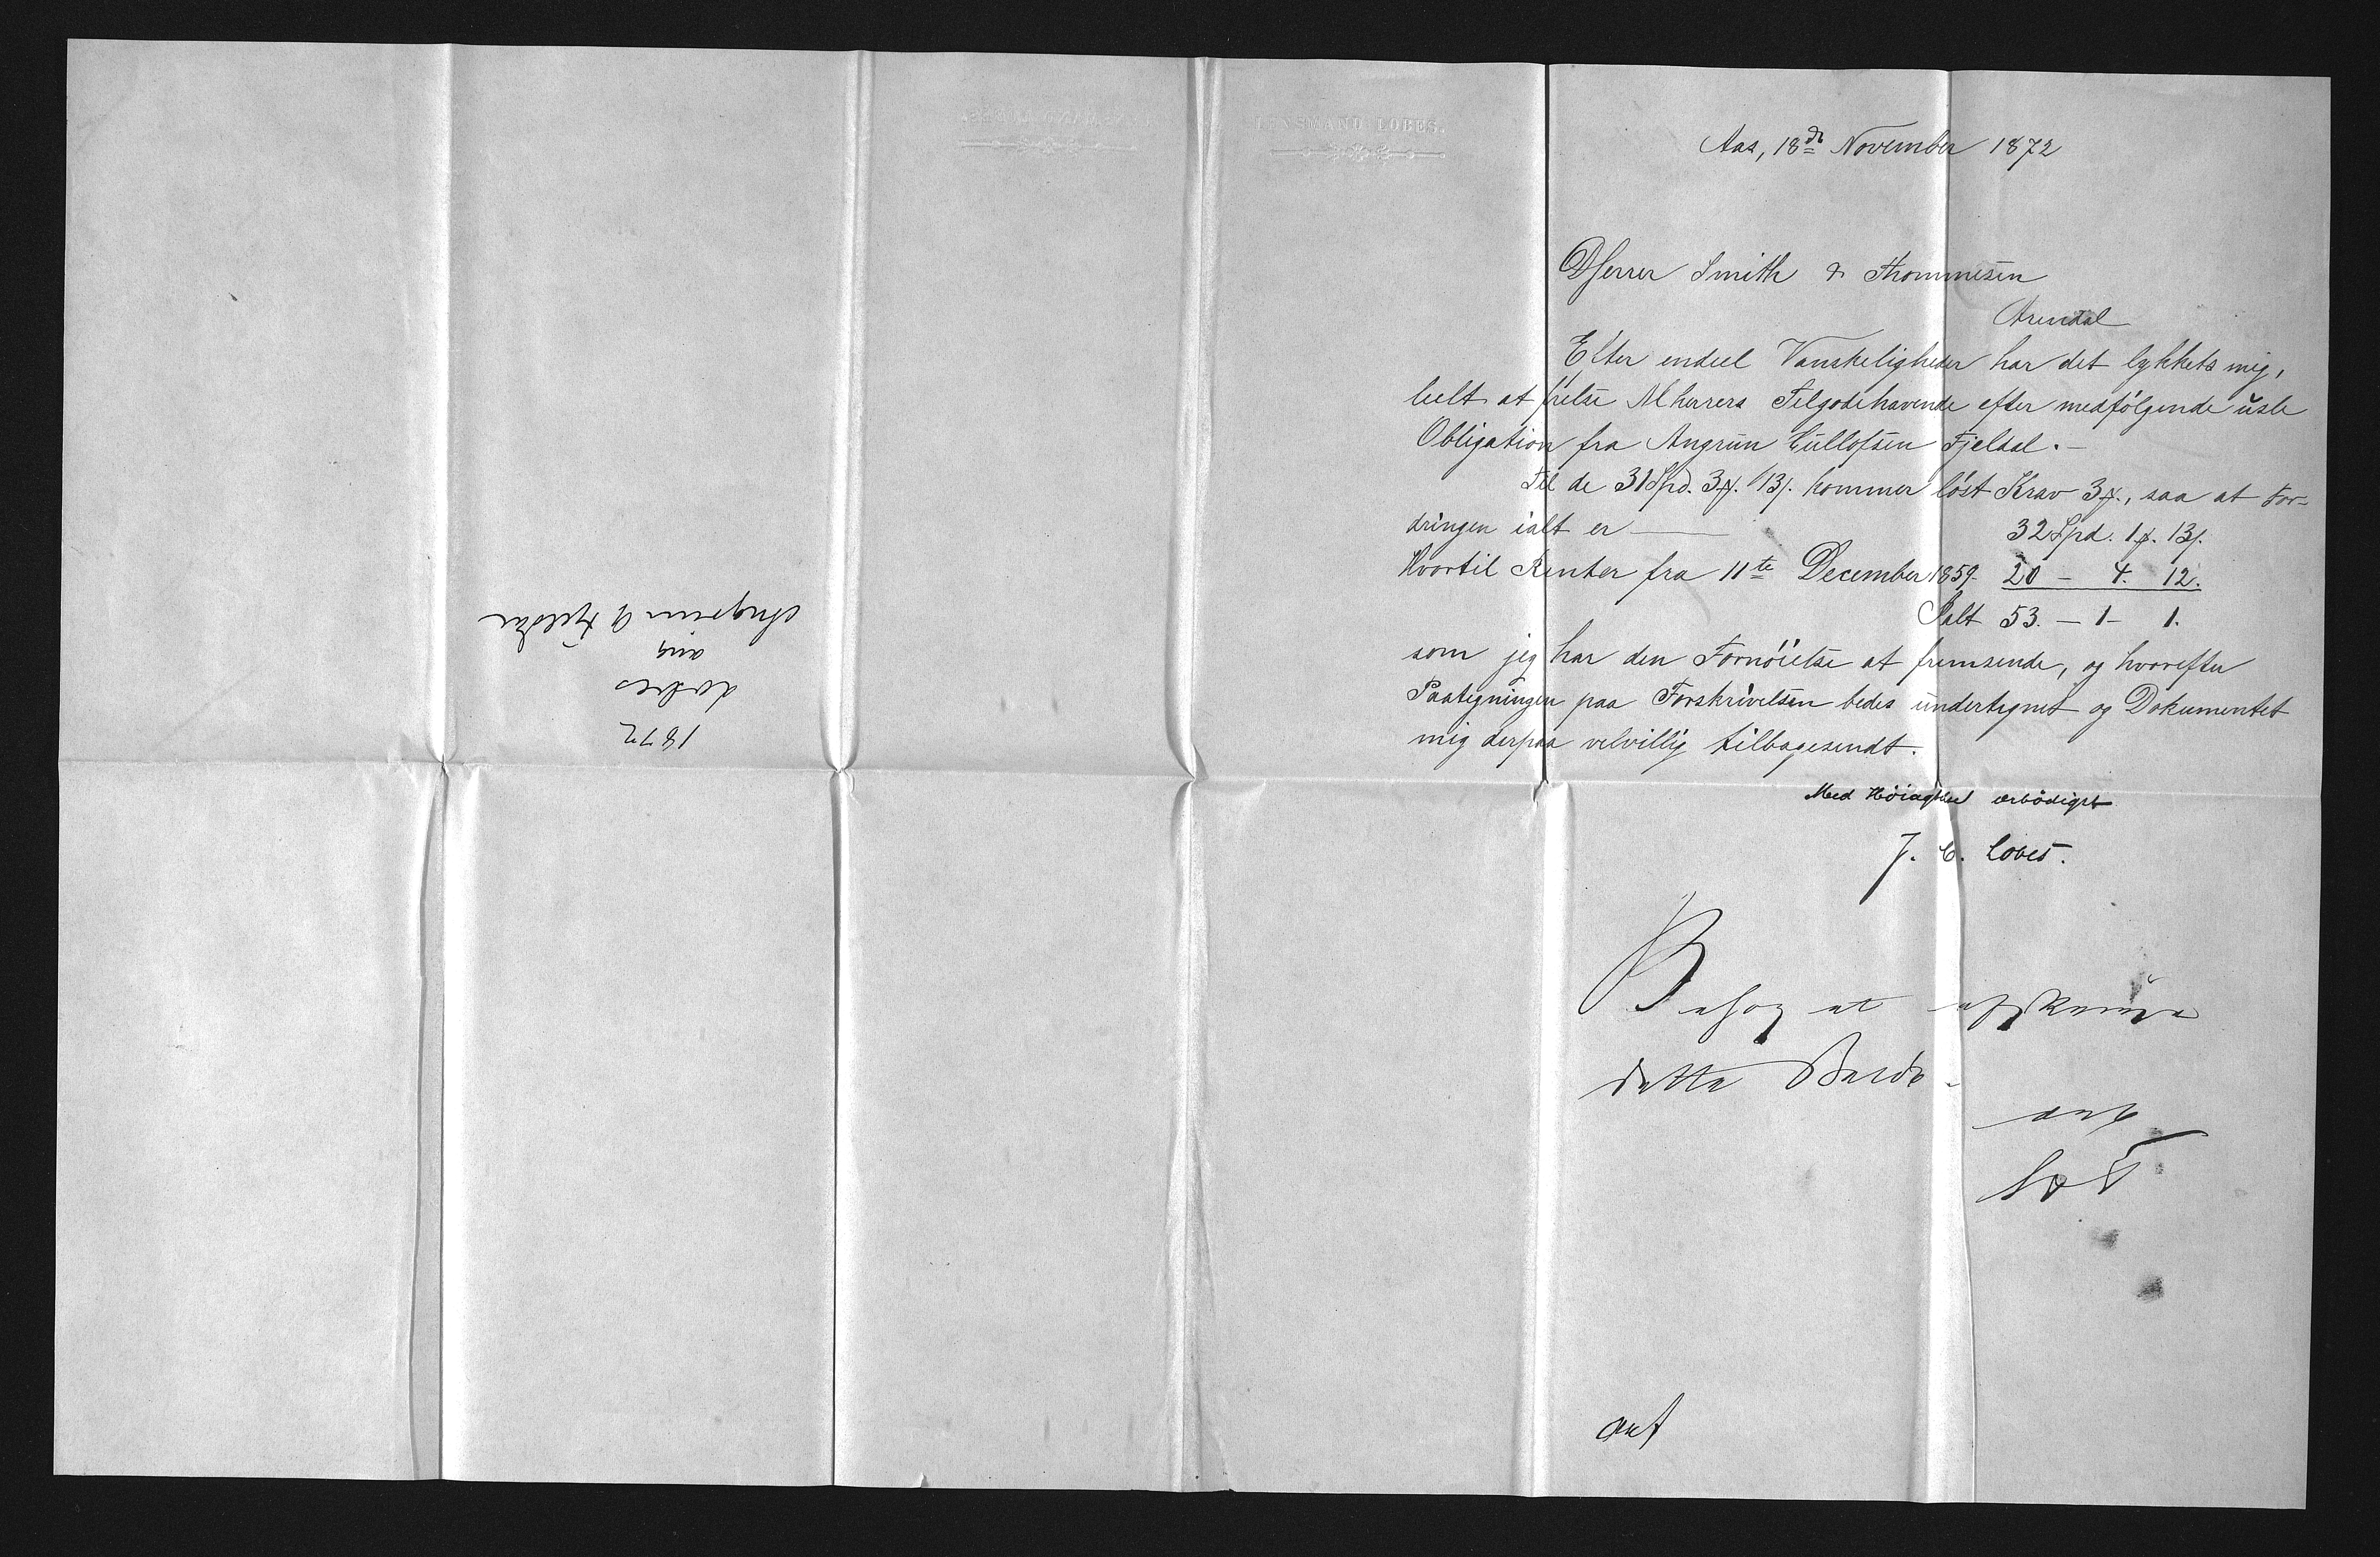 LENSMAND LOBES.
Aas, 18de November 1872
DHerrer Smith & Thommesen
Arendal
Efter endeel Vanskeligheder har det lykkets mig,
heelt at frelse MHerrers Tilgodehavende efter medfølgende usle
Obligation fra Angrim Gullofsen Fjeldal.-
Til de 31 Spd. 3 13 kommer løst Krav 3, saa at For-
dringen ialt er — 32 Spd. 1. 13
Hvortil Renter fra 11te December 1859- 20 - 4. 12.
Ialt 53. - 1 - 1.
som jeg har den Fornöielse at fremsende, og hvorefter
Paategningen paa Forskrivelsen bedes undertegnet og Dokumentet
mig derpaa velvillig tilbagesendt.
Med Höiagtelse ærbödigst
J. C. Lobes.
Besøg at afskrive
dette Buide
ant
1872
Lobes
ang
Angrim G Fjeldal